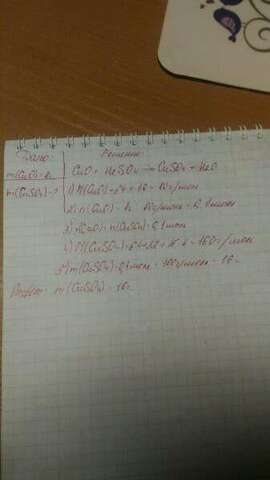 Дано:
Решение:
m(CuO)=8г
CuO + H2SO4 → CuSO4 + H2O
m(CuSO4)-?
1) M(CuO)=64+16=80г/моль
2) n(CuO)= 80г/моль = 0,1моль
3) n(CuO)=n(CuSO4)=0,1моль
4) M(CuSO4)=64+32+16·4=160г/моль
5) m(CuSO4)=0,1моль · 160г/моль = 16г
Ответ: m(CuSO4)=16г